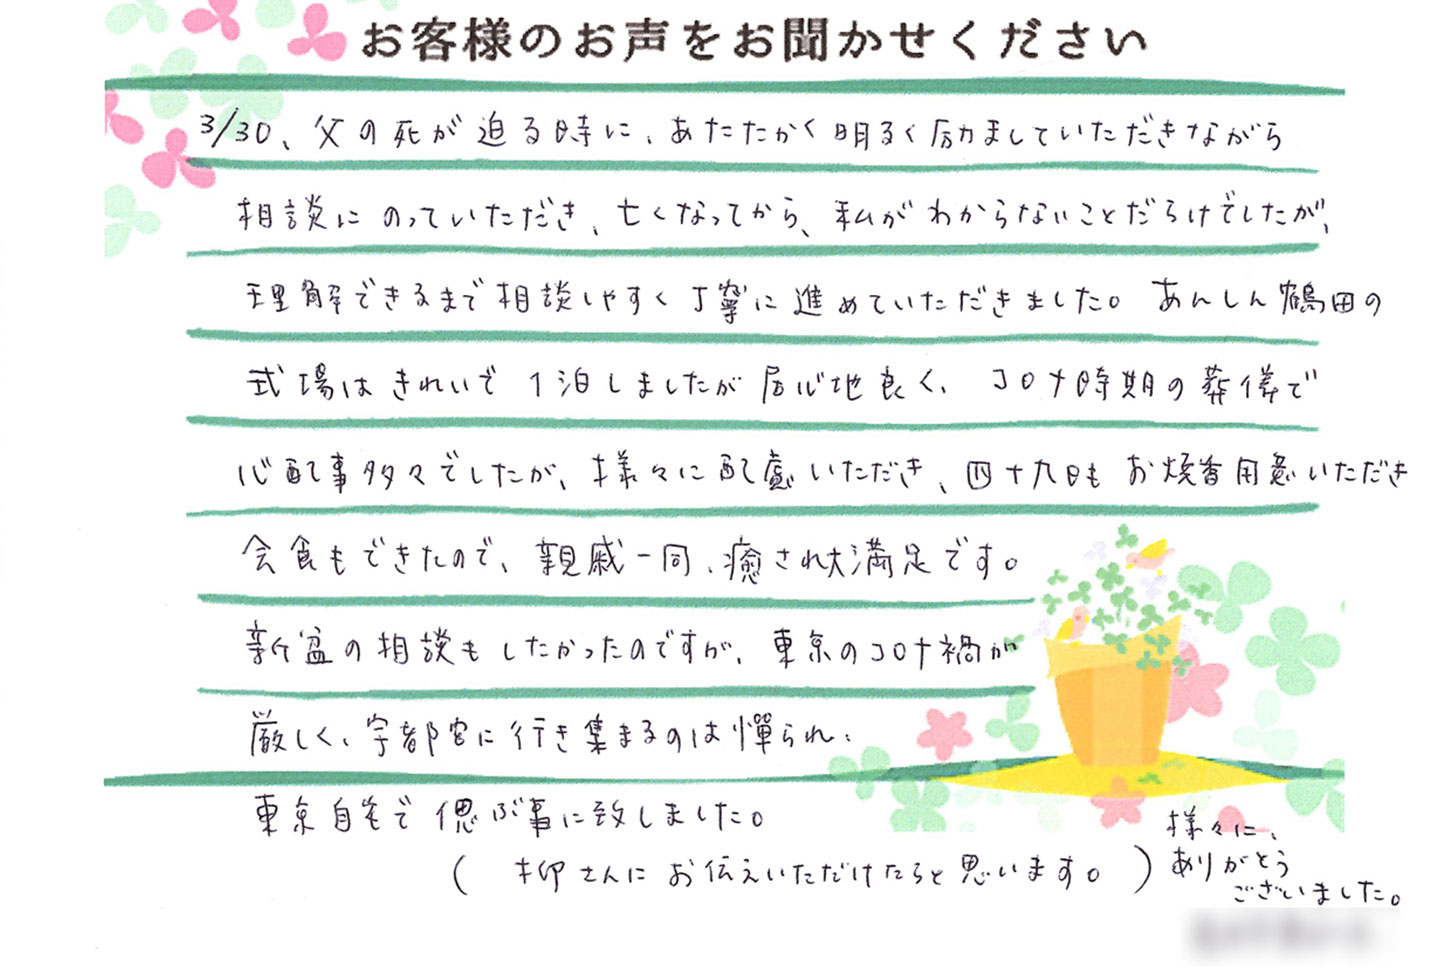 お客様のお声をお聞かせください
3/30、父の死が迫る時に、あたたかく明るく励ましていただきながら
相談にのっていただき、亡くなってから、私がわからないことだらけでしたが、
理解できるまで相談しやすく丁寧に進めていただきました。あんしん鶴田の
式場はきれいで1泊しましたが居心地良く、コロナ時期の葬儀で
心配事多々でしたが、様々に配慮いただき、四十九日もお焼香用意いただき
会食もできたので、親戚一同、癒され大満足です。
新盆の相談もしたかったのですが、東京のコロナ禍が
厳しく、宇都宮に行き集まるのは憚られ、
東京自宅で偲ぶ事に致しました。
(柳さんにお伝えいただけたらと思います。)
様々に、
ありがとう
ございました。